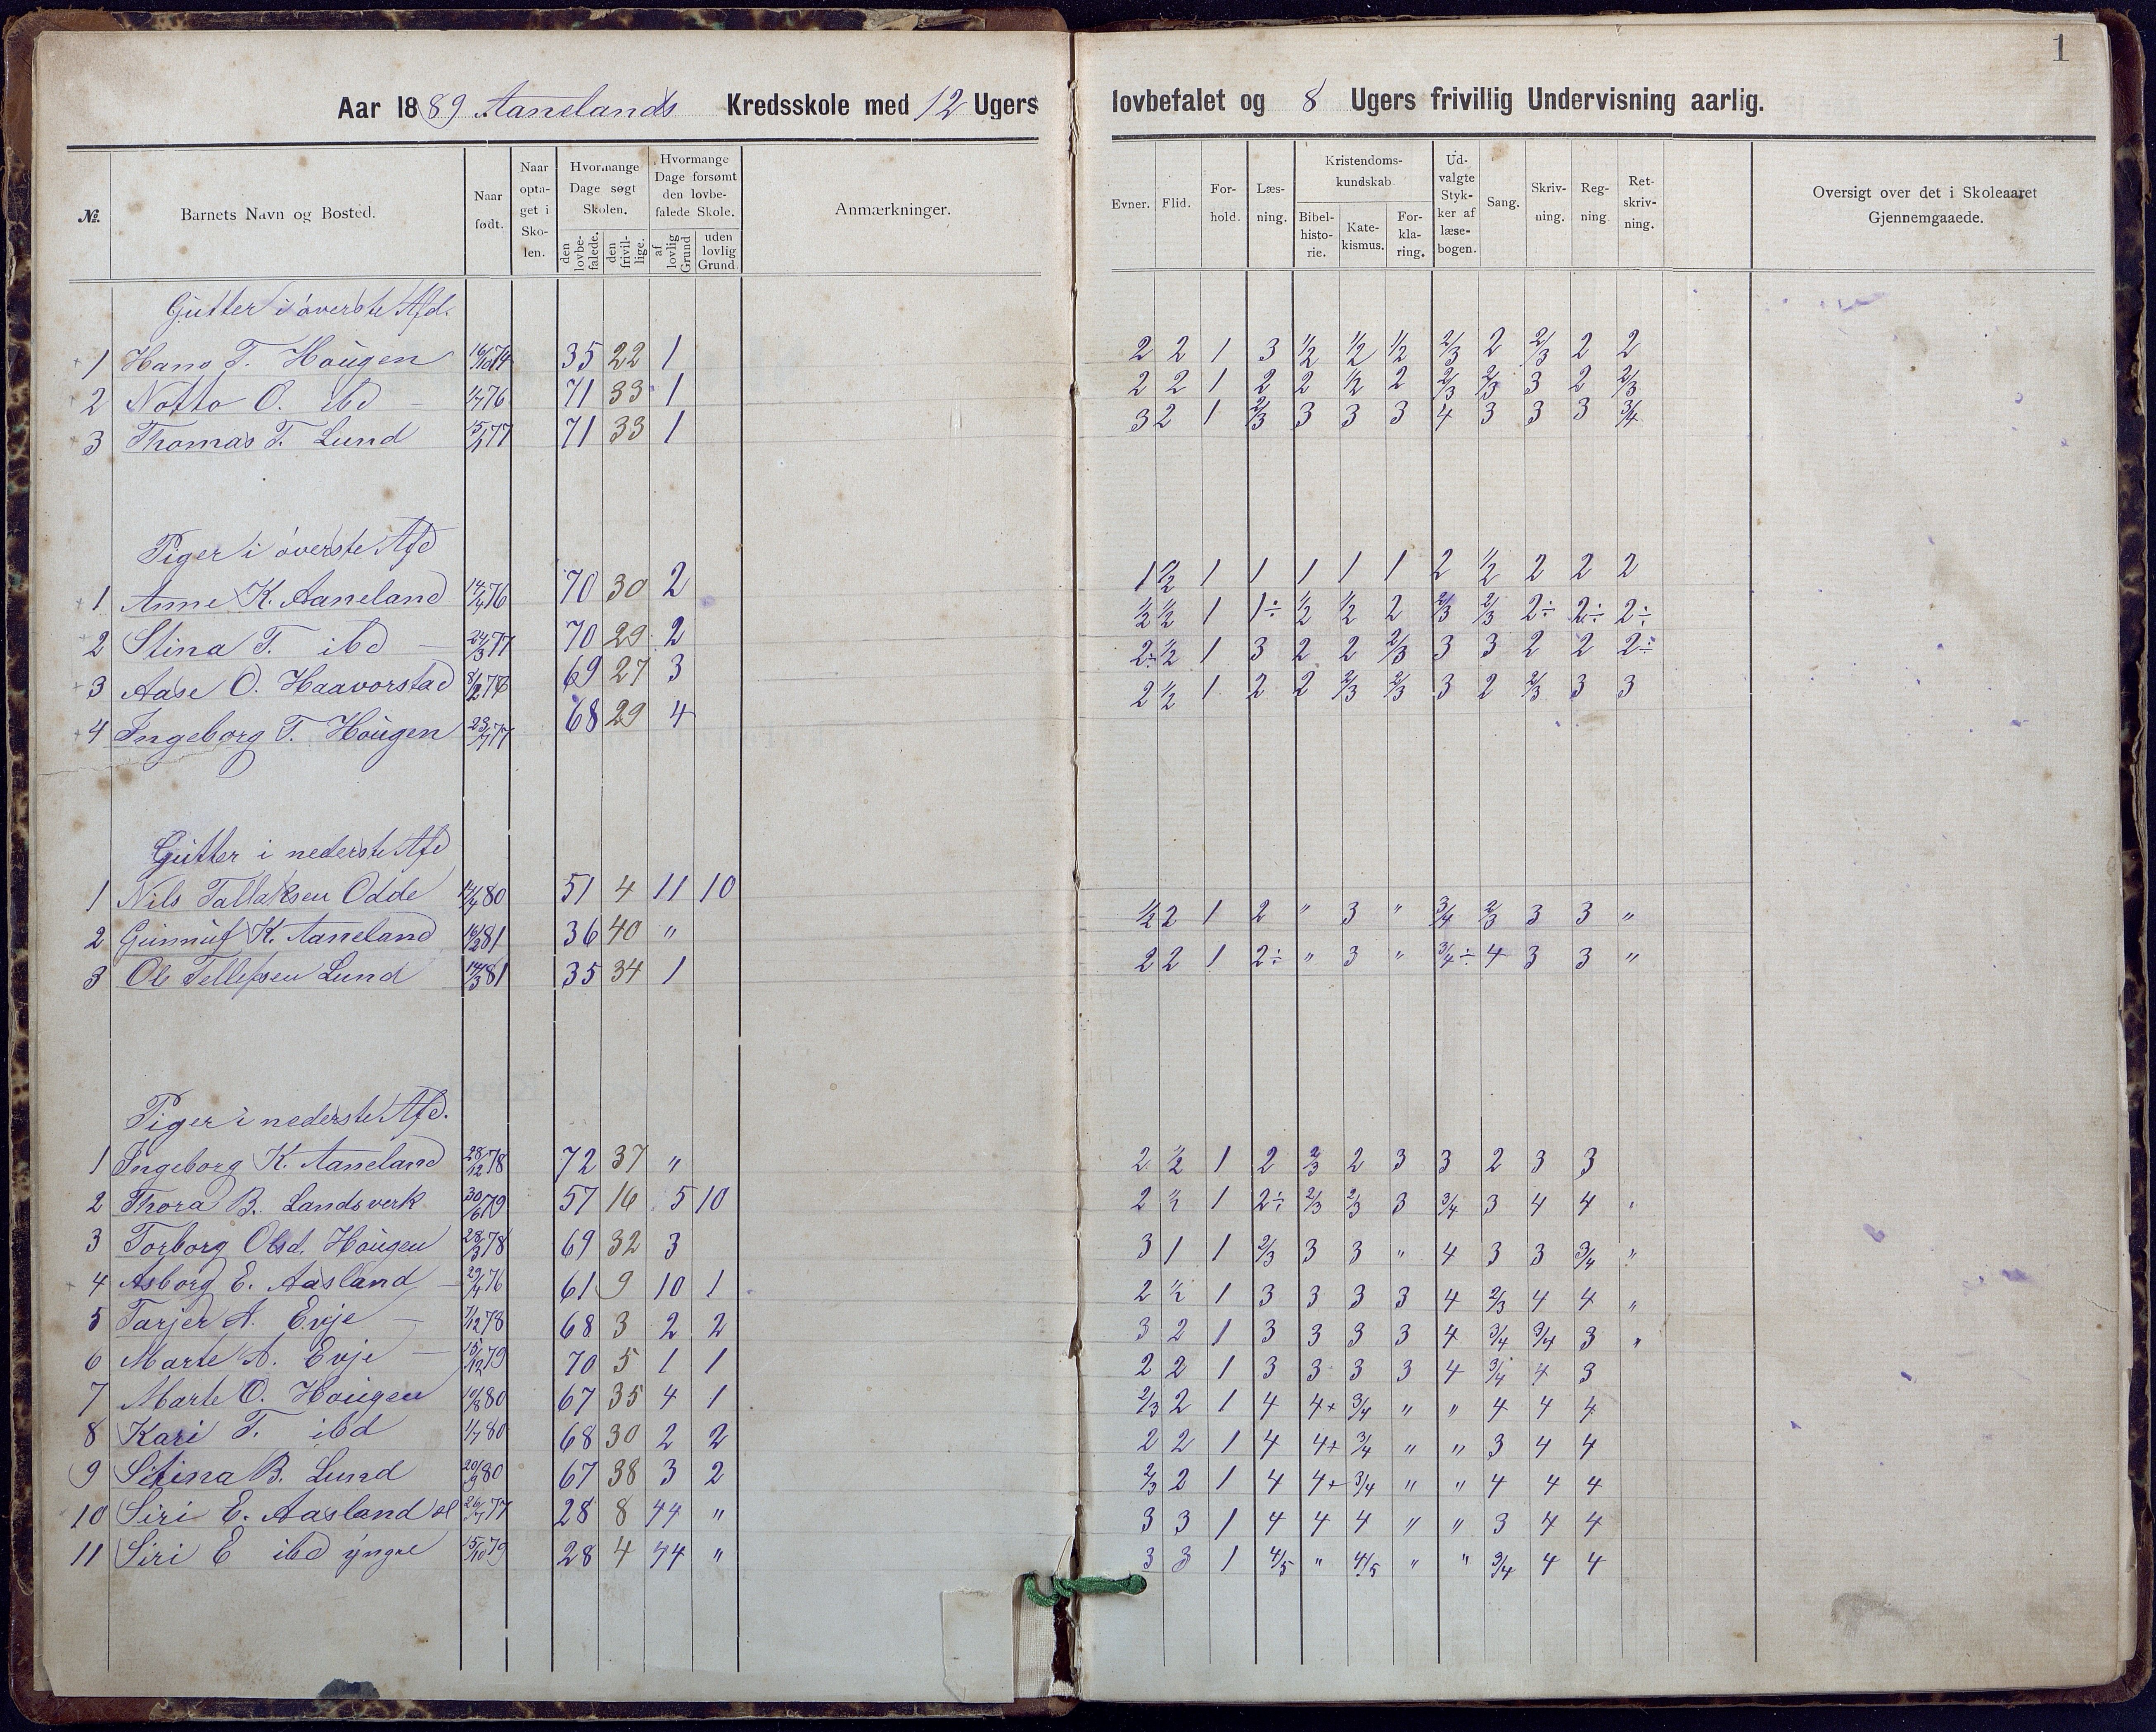 1
Aar 1889 Aanelands Kredsskole med 12 Ugers lovbefalet og 8 Ugers frivillig Undervisning aarlig.
№. Barnets Navn og Bosted. Naar født. Naar opta- get i Sko- len. Hvormange Dage søgt Skolen. den lovbe- falede. den frivil- lige. Hvormange Dage forsømt den lovbe- falede Skole. af lovlig Grund uden lovlig Grund. Anmærkninger. Evner. Flid. For- hold. Læs- ning. Kristendoms- kundskab. Bibel- histo- rie. Kate- kismus. For- kla- ring. Ud- valgte Styk- ker af læse- bogen. Sang. Skriv- ning. Reg- ning Ret- skriv- ning. Oversigt over det i Skoleaaret Gjennemgaaede.
Gutter i øverste Afd.
1 Hans T. Hougen 16/10 74 35 22 1 2 2 1 3 1/2 1/2 1/2 2/3 2 2/3 2 2
2 Notto O. ibd — 1/7 76 71 33 1 2 2 1 2 2 1/2 2 2/3 2/3 3 2 2/3
3 Thomas T. Lund 77 71 33 1 3 2 1 2/3 3 3 3 4 3 3 3 3/4
Piger i øverste Afd
1 Anne K. Aaneland 76 70 30 2 1 1/2 1 1 1 1 1 2 1/2 2 2 2
2 Stina T. ibd — 24/3 77 70 29 2 1/2 1/2 1 1÷ 1/2 1/2 2 2/3 2/3 2÷ 2÷ 2÷
3 Aase O. Haavorstad 69 27 3 2÷ 1/2 1 3 2 2 2/3 3 3 2 2 2÷
4 Ingeborg T. Hougen 77 68 29 4 2 1/2 1 2 2 2/3 2/3 3 2 2/3 3 3
Gutter i nederste Afd
1 Nils Tallaksen Odde 80 51 4 11 10
2 Gunnuf K. Aaneland 16/2 81 36 40 " 1/2 2 1 2 " 3 " 3/4 2/3 3 3 "
3 Ole Tellefsen Lund 14/3 81 35 34 1 2 2 1 2÷ " 3 " 3/4÷ 4 3 3 "
Piger i nederste Afd.
1 Ingeborg K. Aaneland 28/12 78 72 37 " 2 1/2 1 2 2/3 2 3 3 2 3 3
2 Thora B. Landsverk 30/6 79 57 16 5 10 2 1/2 1 2÷ 2/3 2/3 3 3/4 3 4 4 "
3 Torborg Olsd. Hougen 28/3 78 69 32 3 3 1 1 2/3 3 3 " 4 3 3 3/4 "
4 Asborg E. Aasland — 76 61 9 10 1 2 1/2 1 3 3 3 3 4 2/3 4 4 "
5 Tarjer A. Evje — 7/12 78 68 3 2 2 3 2 1 3 3 3 3 4 3/4 3/4 3 "
6 Marte A. Evje — 15/12 79 70 5 1 1 2 2 1 3 3 3 3 4 3/4 4 3
7 Marte O. Hougen 10/8 80 67 35 4 1 2/3 2 1 4 4+ 3/4 " " 4 4 4
8 Kari T. ibd 1/7 80 68 30 2 2 2 2 1 4 4+ 3/4 " " 3 4 4
9 Stina B. Lund 20/9 80 67 38 3 2 2/3 2 1 4 4+ 3/4 " " 4 4 4
10 Siri E. Aasland 77 28 8 44 " 3 3 1 4 4 4 " " 3 4 4
11 Siri E ibd yngre 15/10 79 28 4 44 " 3 3 1 4/5 " 4/5 " " 3/4 4 4